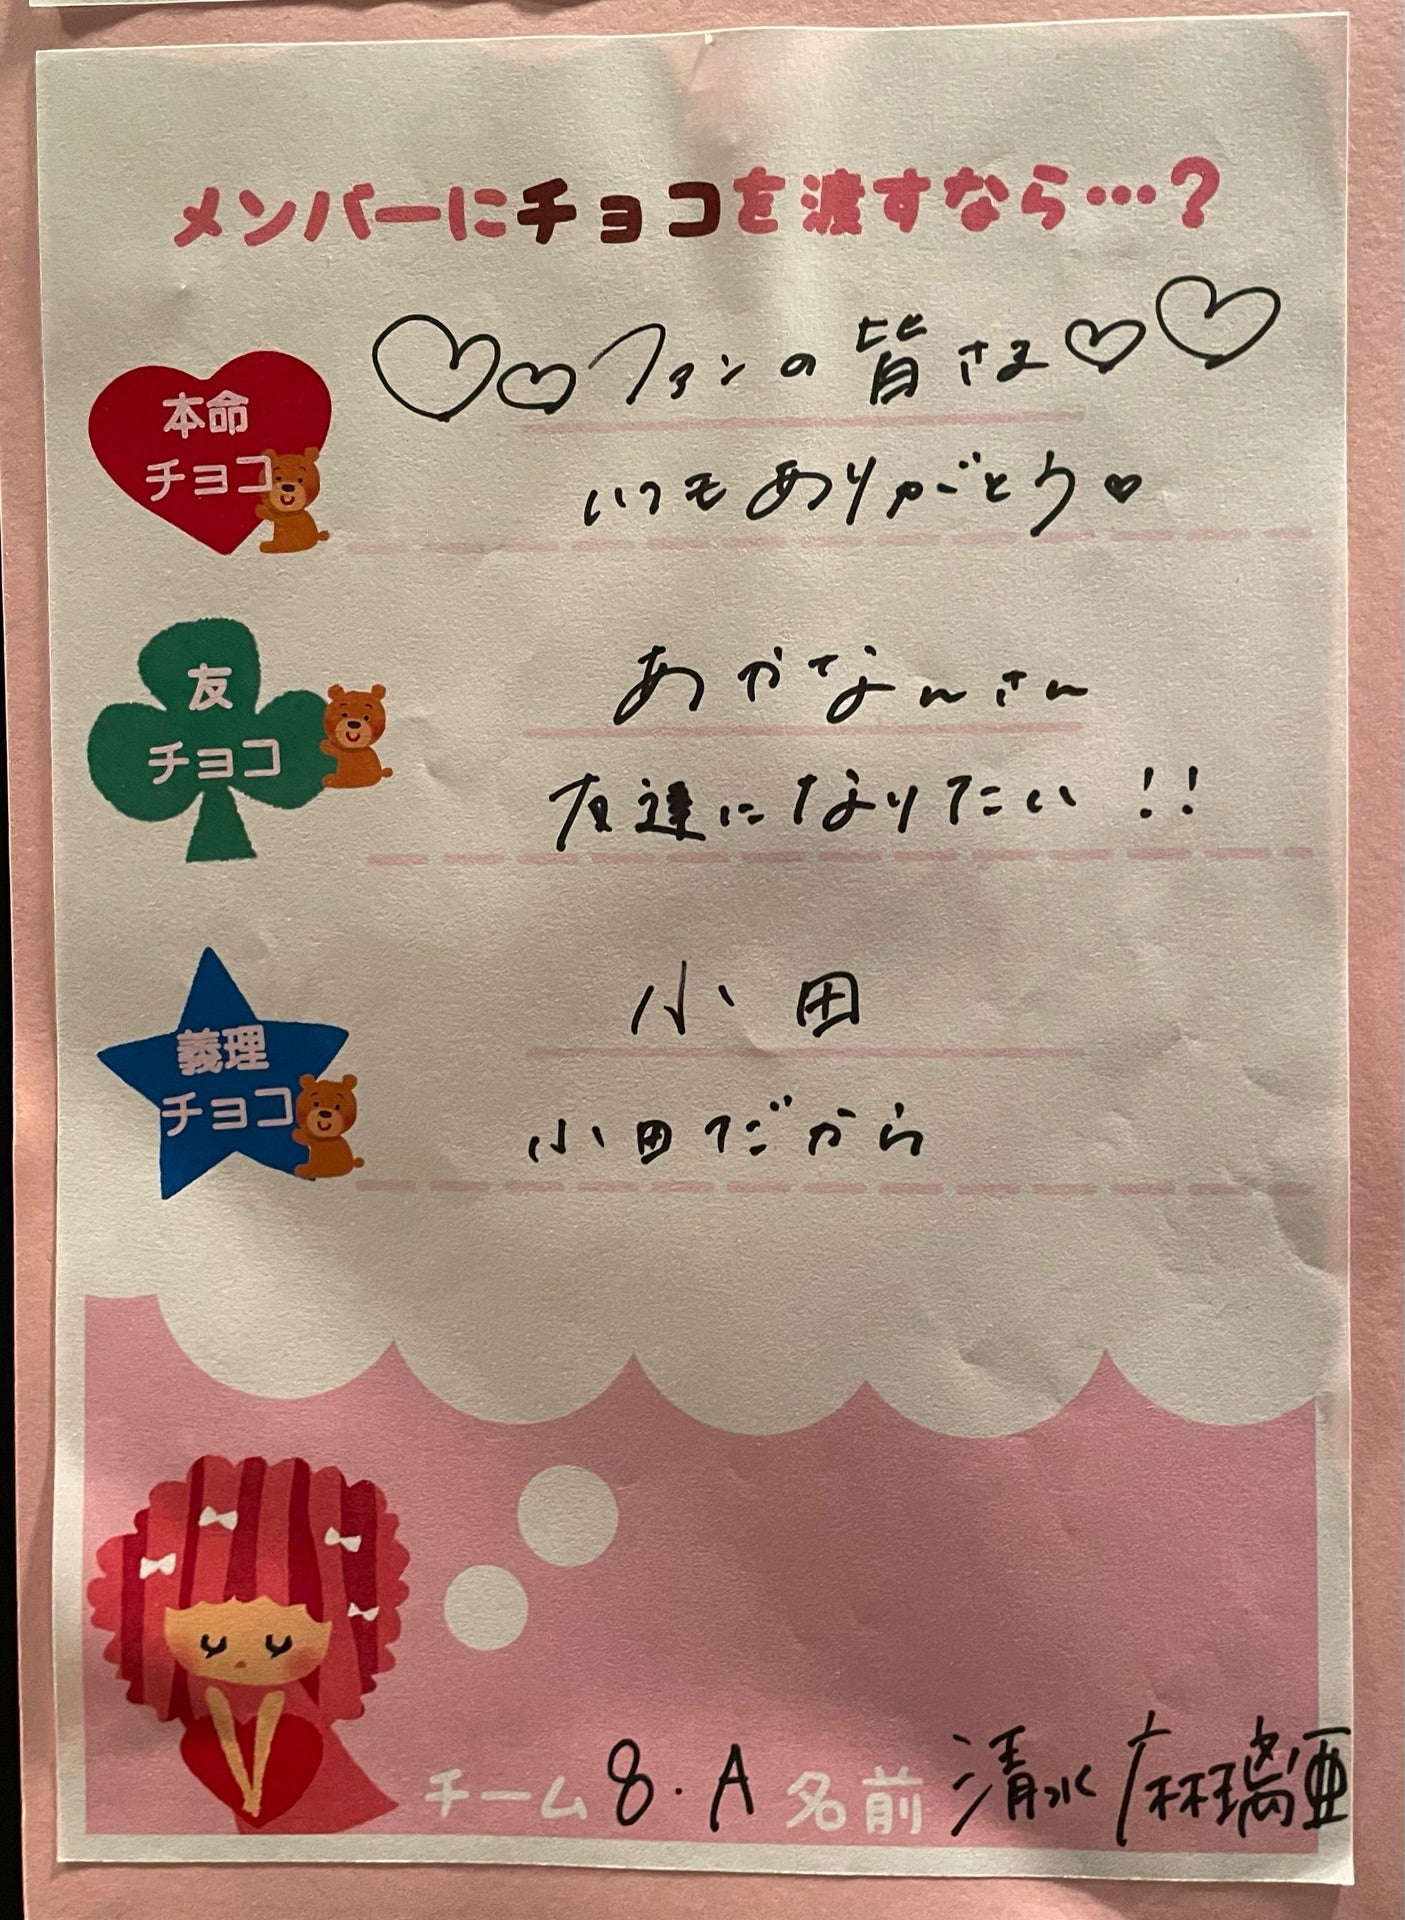 メンバーにチョコを渡すなら…?
本命
チョコ
♡♡ファンの皆さま♡♡
いつもありがとう♥
友
チョコ
あかなんさん
友達になりたい!!
義理
チョコ
小田
小田だから
チーム 8・A 名前 清水麻璃亜